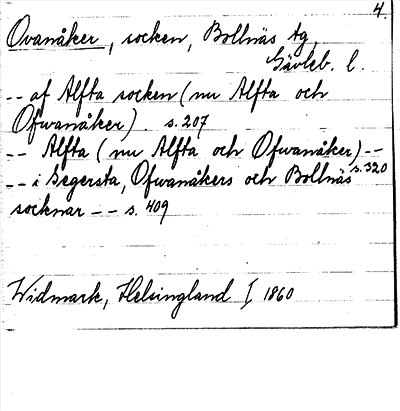 4.
Ovanåker, socken, Bollnäs tg,
Gävleb. l.
-- af Alfta socken (nu Alfta och
Ofwanåker). s. 207
-- Alfta (nu Alfta och Ofwanåker) --
s. 320
-- i Segersta, Ofwanåkers och Bollnäs
socknar -- s. 409
Widmark, Helsingland I 1860